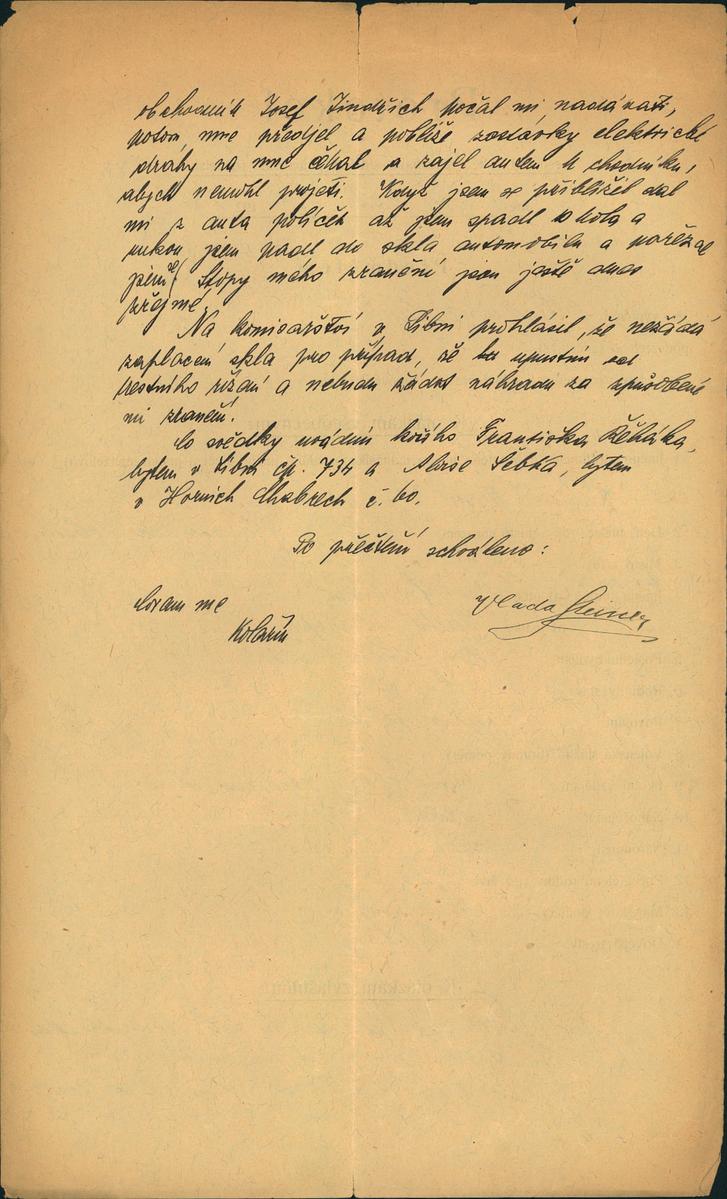 obchodník Josef Jindřich počal mi nadávati,
potom mne předjel a poblíže zastávky elektrické
dráhy na mne čekal a zajel autem k chodníku,
abych nemohl projeti. Když jsem se přiblížil dal
mi z auta políček až jsem spadl s kola a
rukou jsem padl do skla automobilu a pořezal
jsem se. Stopy mého zranění jsou ještě dnes
zřejmé.
Na komisařství v Libni prohlásil, že nežádá
zaplacení skla pro případ, že upustím od
trestního řízení a nebudu žádat náhradu za způsobené
mi zranění.
Co svědky uvádím Františka
bytem v Libni čp. 734 a Aloise Šebka, bytem
v Horních Chabrech č. 60.
Po přečtení schváleno:
Kolařík
Vlada Steiner